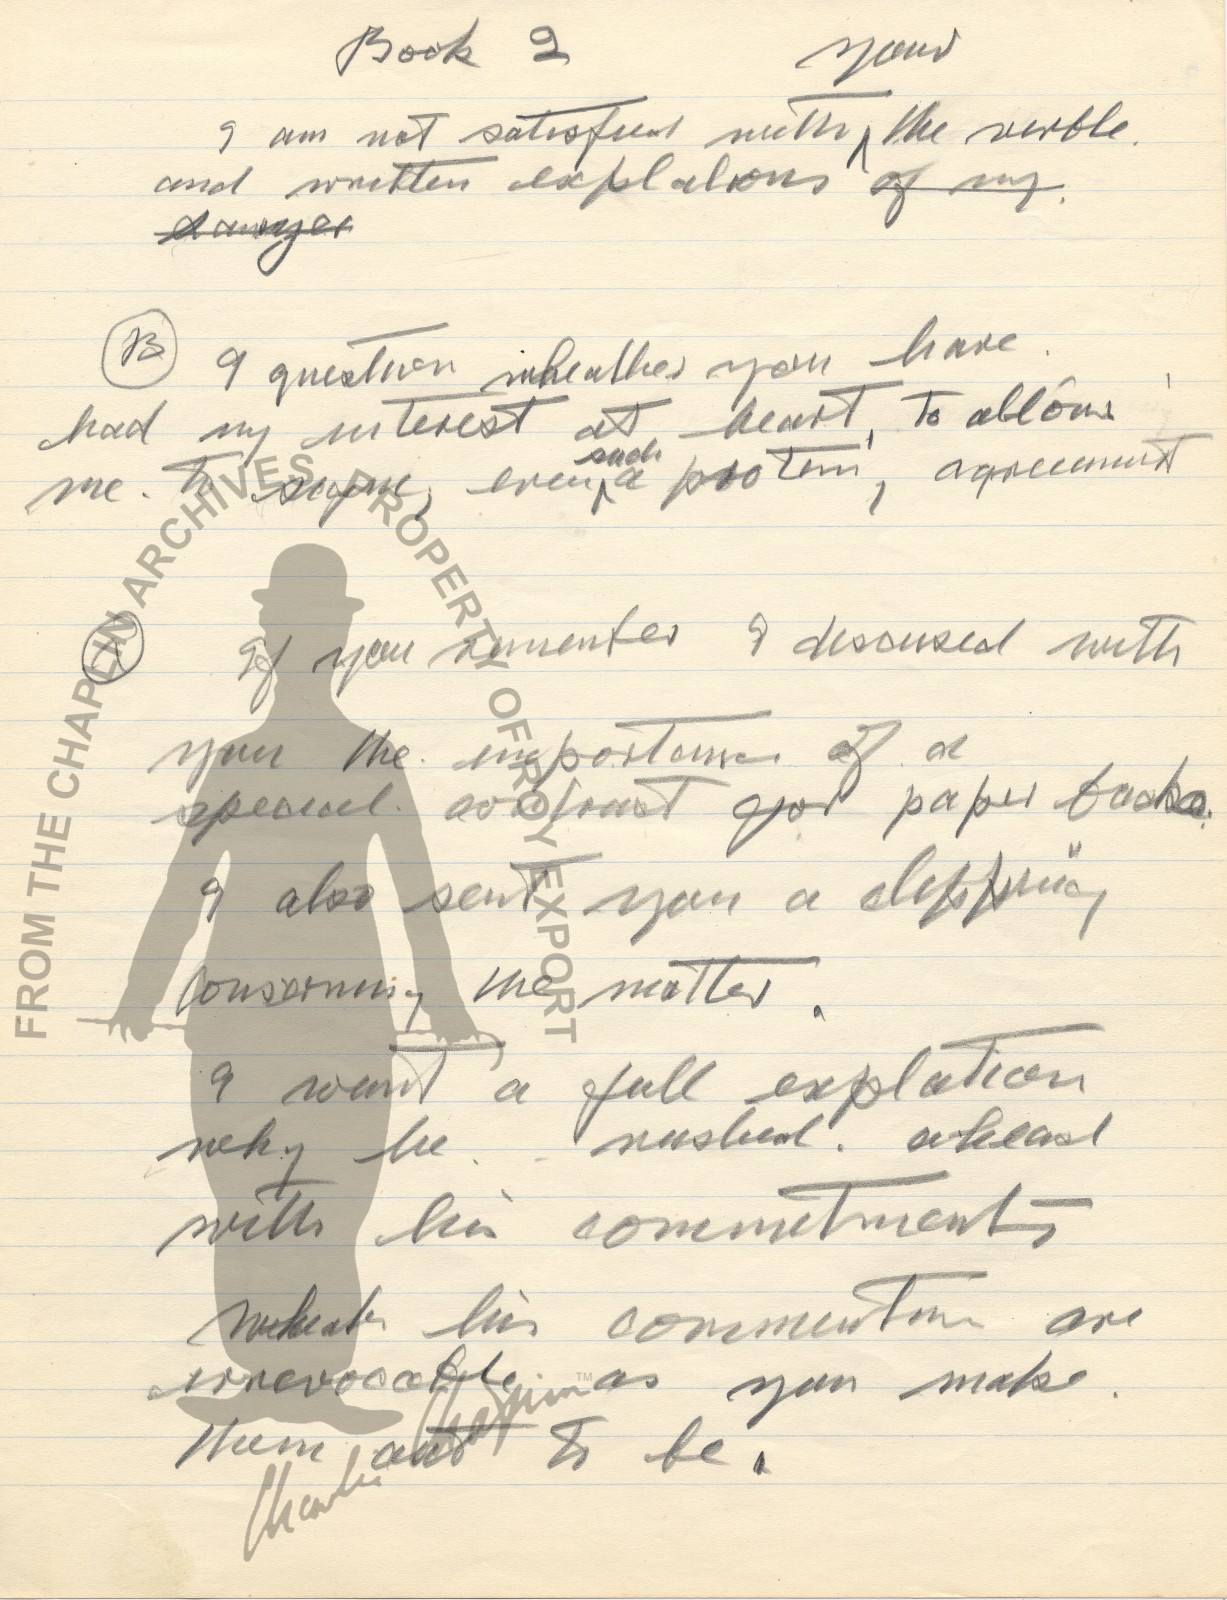 Book 2 your
I am not satisfied with ^ the verble
and written explations of my
Lawyer
B
I question wheather you have
had my interest at heart, to allow
me. to signe, even such a protem, agreement
If you remember I discused with
you the importance of a
special. contract for paper backs.
I also sent you a clipping
conserning the matter.
I want a full explation
why he. rushed. ahead
with his commitments
wheather his are
irrevocable as you make.
them out to be.
FROM THE CHAPLIN ARCHIVES PROPERTY OF ROY EXPORT
Charlie Chaplin™